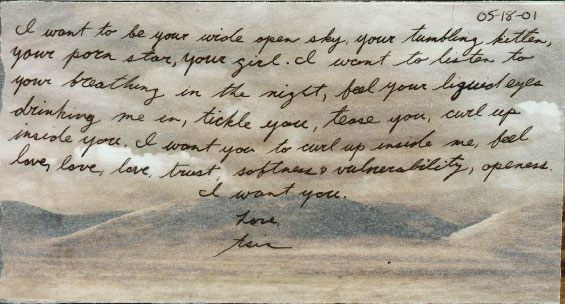 05-18-01
I want to be your wide open sky, your tumbling kitten,
your porn star, your girl. I want to listen to
your breathing in the night, feel your liquid eyes
drinking me in, tickle you, tease you, curl up
inside you. I want you to curl up inside me, feel
love, love, love, trust, softness & vulnerability, openess.
I want you.
Love,